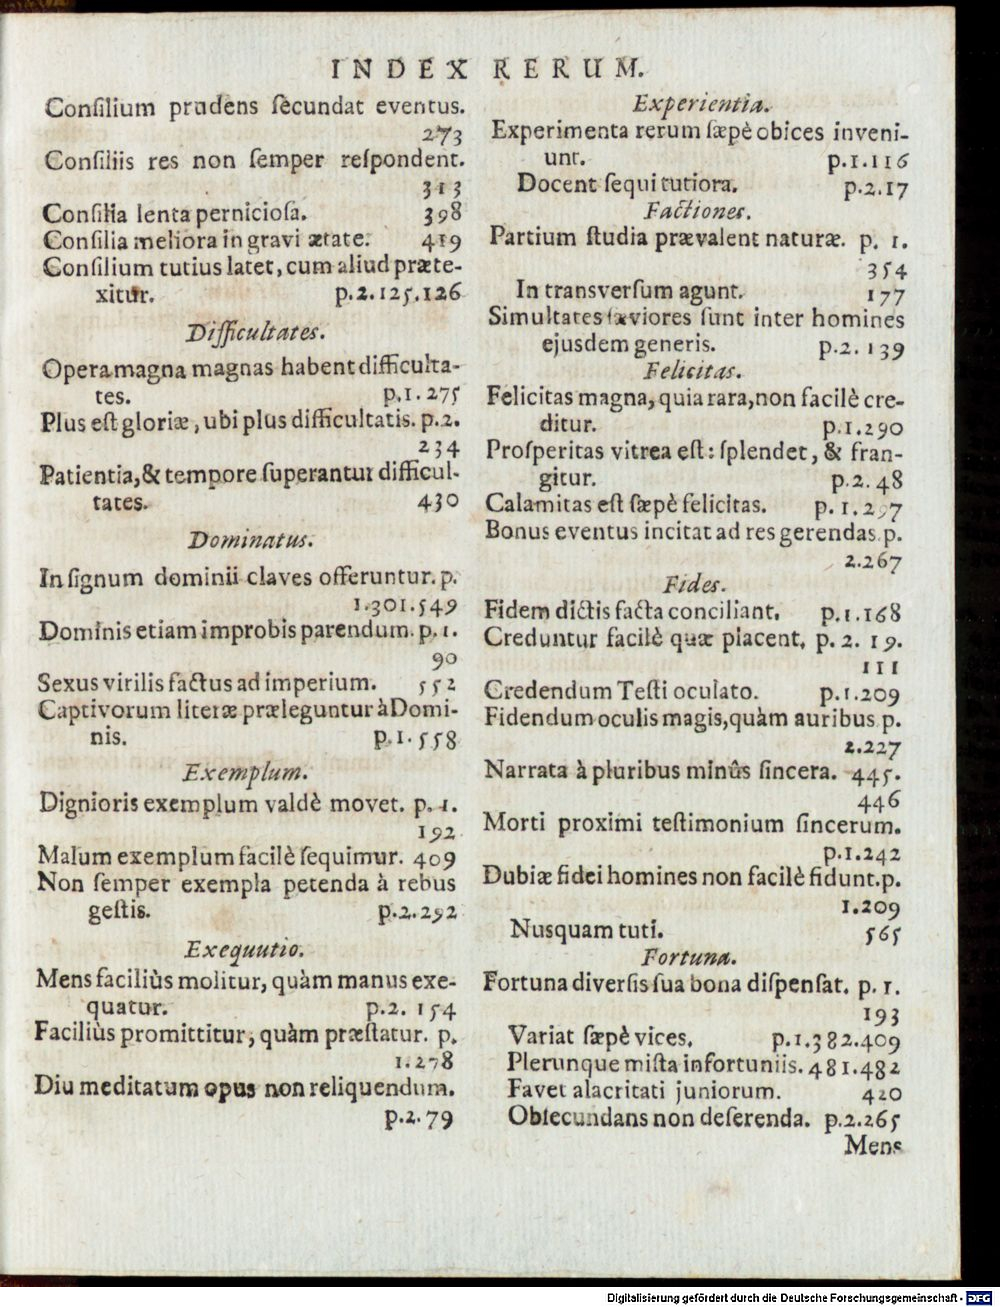 INDEX RERUM.
Consilium prudens secundat eventus.
273
Consiliis res non semper respondent.
313
Consilia lenta perniciosa. 398
Consilia meliora in gravi ætate. 419
Consilium tutius latet, cum aliud præte-
xitur. p.2.125.126
Difficultates.
Opera magna magnas habent difficulta-
tes. p.1.275
Plus est gloriæ, ubi plus difficultatis. p.2.
234
Patientia, & tempore superantur difficul-
tates. 430
Dominatus.
In signum dominii claves offeruntur. p.
1.301.549
Dominis etiam improbis parendum. p.1.
90
Sexus virilis factus ad imperium. 552
Captivorum literæ præleguntur à Domi-
nis. p.1.558
Exemplum.
Dignioris exemplum valdè movet. p.1.
192
Malum exemplum facilè sequimur. 409
Non semper exempla petenda à rebus
gestis. p.2.292
Exequutio.
Mens faciliùs molitur, quàm manus exe-
quatur. p.2.154
Faciliùs promittitur, quàm præstatur. p.
1.278
Diu meditatum opus non reliquendum.
p.2.79
Experientia.
Experimenta rerum sæpè obices inveni-
unt. p.1.116
Docent sequi tutiora. p.2.17
Factiones.
Partium studia prævalent naturæ. p. 1.
354
In transversum agunt. 177
Simultates sæviores sunt inter homines
ejusdem generis. p.2.139
Felicitas.
Felicitas magna, quia rara, non facilè cre-
ditur. p.1.290
Prosperitas vitrea est: splendet, & fran-
gitur. p.2.48
Calamitas est sæpè felicitas. p.1.297
Bonus eventus incitat ad res gerendas. p.
2.267
Fides.
Fidem dictis facta conciliant. p.1.168
Creduntur facilè quæ placent. p. 2. 19.
111
Credendum Testi oculato. p.1.209
Fidendum oculis magis, quàm auribus. p.
2.227
Narrata à pluribus minûs sincera. 445.
446
Morti proximi testimonium sincerum.
p.1.242
Dubiæ fidei homines non facilè fidunt. p.
1.209
Nusquam tuti. 565
Fortuna.
Fortuna diversis sua bona dispensat. p. 1.
193
Variat sæpè vices. p.1.382.409
Plerunque mista infortuniis. 481.482
Favet alacritati juniorum. 420
Obsecundans non deserenda. p.2.265
Mens
Digitalisierung gefördert durch die Deutsche Forschungsgemeinschaft - DFG